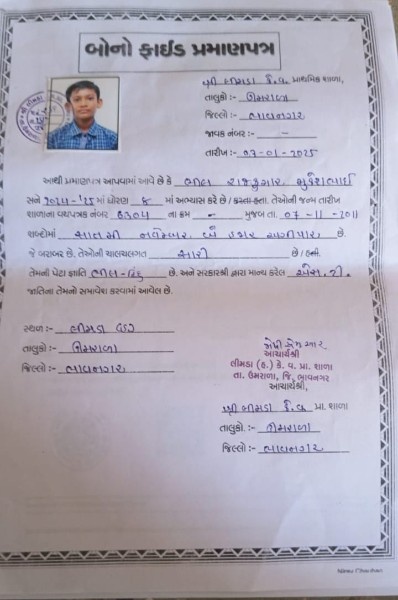 બોનો ફાઈડ પ્રમાણપત્ર
શ્રી લીમડા કે.વ. પ્રાથમિક શાળા,
તાલુકો :- ઉમરાળા
જિલ્લો :- ભાવનગર
જાવક નંબર :- —
તારીખ :- 07-01-2025
આથી પ્રમાણપત્ર આપવામાં આવે છે કે ભીલ રાજકુમાર મુકેશભાઈ
સને ૨૦૨૪-'૨૫ માં ધોરણ ૮ માં અભ્યાસ કરે છે / કરતા હતા. તેઓની જન્મ તારીખ
શાળાના વયપત્રક નંબર 6304 ના ક્રમ - મુજબ તા. 07-11-2011
શબ્દોમાં સાતમી નવેમ્બર, બે હજાર અગીયાર છે.
જે બરાબર છે. તેઓની ચાલચલગત સારી છે / હતી.
તેમની પેટા જ્ઞાતિ ભીલ-હિંદુ છે. અને સરકારશ્રી દ્વારા માન્ય કરેલ એસ.ટી.
જાતિના તેમનો સમાવેશ કરવામાં આવેલ છે.
સ્થળ :- લીમડા
તાલુકો :- ઉમરાળા
જિલ્લો :- ભાવનગર
આચાર્યશ્રી
લીમડા (હ.) કે. વ. પ્રા. શાળા
તા. ઉમરાળા, જિ. ભાવનગર
આચાર્યશ્રી,
શ્રી લીમડા કે.વ. પ્રા. શાળા
તાલુકો :- ઉમરાળા
જિલ્લો :- ભાવનગર